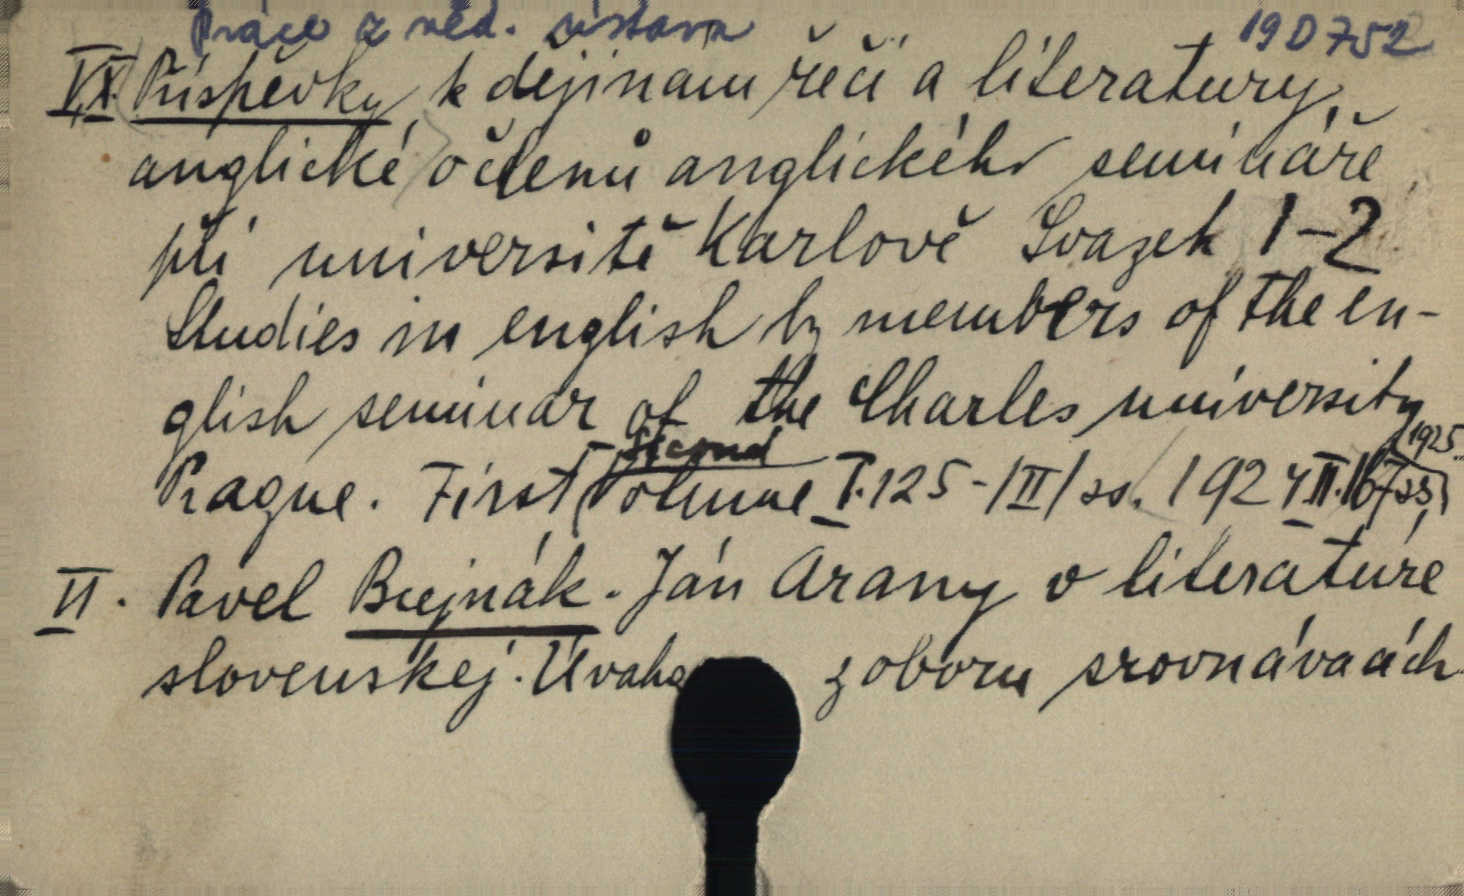 Práce z věd. ústavů 19 D 752
VI. X. Příspěvky k dějinam řeči a literatury
anglické od členů anglického semináře
při universitě Karlově Svazek 1-2
Studies in english by members of the en-
glish seminar of the Charles university
second 1925
Prague. First Volume I. 125 - /II/ ss. 1924 II. 167 ss
VI. Pavel Bujnák. Ján Arany v literatúre
slovenskej. Úvaha z oboru srovnávaách